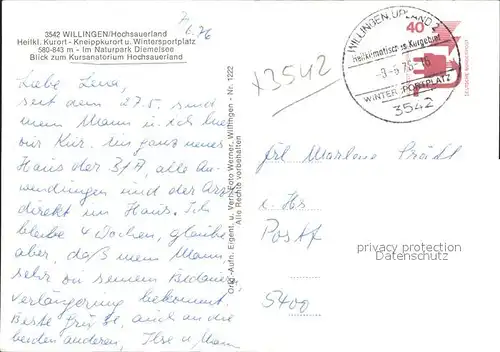 7.
6.76
3542 WILLINGEN/Hochsauerland
Heilkl. Kurort - Kneippkurort u. Wintersportplatz
580-843 m - Im Naturpark Diemelsee
Blick zum Kursanatorium Hochsauerland
x3542
WILLINGEN, UPLAND 2
Heilklimatischer Kurgebiet
-9-6.76-16
WINTERSPORTPLATZ
3542
40
DEUTSCHE BUNDESPOST
Liebe Lena,
seit dem 27.5. sind
mein Mann u. ich hier
zur Kur. Ein ganz neues
Haus der BfA, alle An-
wendungen und der Arzt
direkt im Haus. Ich
bleibe 4 Wochen, glaube
aber, daß mein Mann
sehr zu seinem Bedauern,
Verlängerung bekommt.
Beste Grüße, auch an die
beiden anderen, Ilse u. Mann
Orig.-Aufn. Eigent. u. Verl. Foto Werner, Willingen - Nr. 1222
Alle Rechte vorbehalten
Frl. Marlene
Postf
5400
privacy protection
Datenschutz